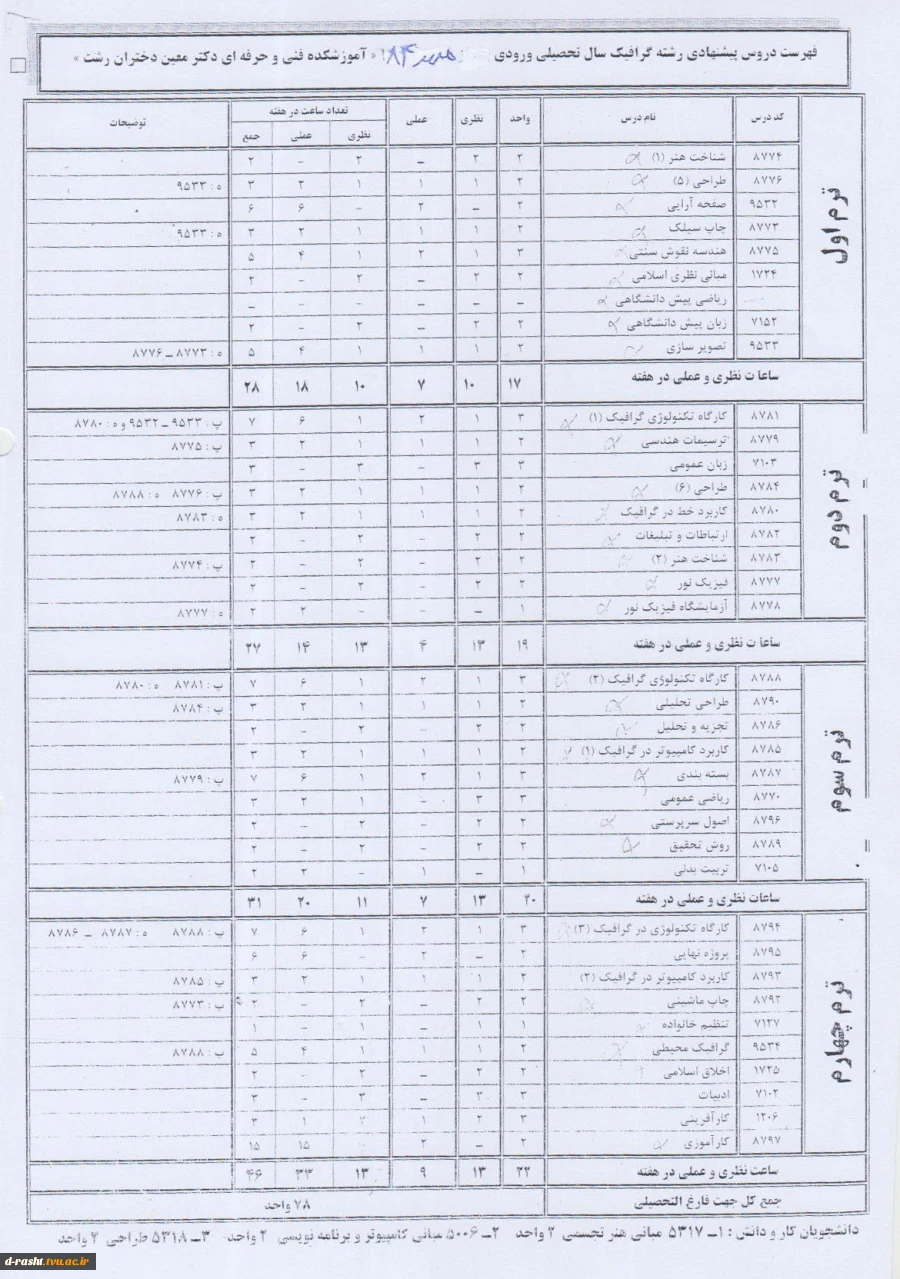 فهرست دروس پیشنهادی رشته گرافیک سال تحصیلی ورودی مهر ۸۴ « آموزشکده فنی و حرفه ای دکتر معین دختران رشت »
کد درس نام درس واحد نظری عملی تعداد ساعت در هفته توضیحات
نظری عملی جمع
ترم اول
۸۷۷۴ شناخت هنر (۱) ۲ ۲ – ۲ – ۲
۸۷۷۶ طراحی (۵) ۲ ۱ ۱ ۱ ۲ ۳ ه : ۹۵۳۳
۹۵۳۲ صفحه آرایی ۲ – ۲ – ۶ ۶
۸۷۷۳ چاپ سیلک ۲ ۱ ۱ ۱ ۲ ۳ ه : ۹۵۳۳
۸۷۷۵ هندسه نقوش سنتی ۳ ۱ ۲ ۱ ۴ ۵
۱۷۲۴ مبانی نظری اسلامی ۲ ۲ – ۲ – ۲
ریاضی پیش دانشگاهی – – – – – –
۷۱۵۲ زبان پیش دانشگاهی ۲ ۲ – ۲ – ۲
۹۵۳۳ تصویر سازی ۲ ۱ ۱ ۱ ۴ ۵ ه : ۸۷۷۳ – ۸۷۷۶
ساعات نظری و عملی در هفته ۱۷ ۱۰ ۷ ۱۰ ۱۸ ۲۸
ترم دوم
۸۷۸۱ کارگاه تکنولوژی گرافیک (۱) ۳ ۱ ۲ ۱ ۶ ۷ پ : ۹۵۳۳ – ۹۵۳۲ و ه : ۸۷۸۰
۸۷۷۹ ترسیمات هندسی ۲ ۱ ۱ ۱ ۲ ۳ پ : ۸۷۷۵
۷۱۰۳ زبان عمومی ۳ ۳ – ۳ – ۳
۸۷۸۴ طراحی (۶) ۲ ۱ ۱ ۱ ۲ ۳ پ : ۸۷۷۶ ه : ۸۷۸۸
۸۷۸۰ کاربرد خط در گرافیک ۲ ۱ ۱ ۱ ۲ ۳ ه : ۸۷۸۳
۸۷۸۲ ارتباطات و تبلیغات ۲ ۲ – ۲ – ۲
۸۷۸۳ شناخت هنر (۲) ۲ ۲ – ۲ – ۲ پ : ۸۷۷۴
۸۷۷۷ فیزیک نور ۲ ۲ – ۲ – ۲
۸۷۷۸ آزمایشگاه فیزیک نور ۱ – – – ۲ ۲ ه : ۸۷۷۷
ساعات نظری و عملی در هفته ۱۹ ۱۳ ۴ ۱۳ ۱۴ ۲۷
ترم سوم
۸۷۸۸ کارگاه تکنولوژی گرافیک (۲) ۳ ۱ ۲ ۱ ۶ ۷ پ : ۸۷۸۱ ه : ۸۷۸۰
۸۷۹۰ طراحی تحلیلی ۲ ۱ ۱ ۱ ۲ ۳ پ : ۸۷۸۴
۸۷۸۶ تجزیه و تحلیل ۲ ۲ – ۲ – ۲
۸۷۸۵ کاربرد کامپیوتر در گرافیک (۱) ۲ ۱ ۱ ۱ ۲ ۳
۸۷۸۷ بسته بندی ۳ ۱ ۲ ۱ ۶ ۷ پ : ۸۷۷۹
۸۷۷۰ ریاضی عمومی ۳ ۳ – ۱ ۲ ۳
۸۷۹۶ اصول سرپرستی ۲ ۲ – ۲ – ۲
۸۷۸۹ روش تحقیق ۲ ۲ – ۲ – ۲
۷۱۰۵ تربیت بدنی ۱ – ۱ – ۲ ۲
ساعات نظری و عملی در هفته ۲۰ ۱۳ ۷ ۱۱ ۲۰ ۳۱
ترم چهارم
۸۷۹۴ کارگاه تکنولوژی در گرافیک (۳) ۳ ۱ ۲ ۱ ۶ ۷ پ : ۸۷۸۸ ه : ۸۷۸۷ – ۸۷۸۶
۸۷۹۵ پروژه نهایی ۲ – ۲ – ۶ ۶
۸۷۹۳ کاربرد کامپیوتر در گرافیک (۲) ۲ ۱ ۱ ۱ ۲ ۳ پ : ۸۷۸۵
۸۷۹۲ چاپ ماشینی ۲ ۲ – ۲ – ۲ پ : ۸۷۷۳
۷۱۲۷ تنظیم خانواده ۱ ۱ – ۱ – ۱
۹۵۳۴ گرافیک محیطی ۲ ۱ ۱ ۱ ۴ ۵ پ : ۸۷۸۸
۱۷۲۵ اخلاق اسلامی ۲ ۲ – ۲ – ۲
۷۱۰۲ ادبیات ۳ ۳ – ۳ – ۳
۱۲۰۶ کارآفرینی ۳ ۲ ۱ ۲ ۱ ۳
۸۷۹۷ کارآموزی ۲ – ۲ ۱۵ ۱۵
ساعت نظری و عملی در هفته ۲۲ ۱۳ ۹ ۱۳ ۳۳ ۴۶
جمع کل جهت فارغ التحصیلی ۷۸ واحد
دانشجویان کار و دانش : ۱– ۵۳۱۷ مبانی هنر تجسمی ۲ واحد ۲– ۵۰۰۶ مبانی کامپیوتر و برنامه نویسی ۲ واحد ۳– ۵۳۱۸ طراحی ۲ واحد
d-rasht.tvu.ac.ir